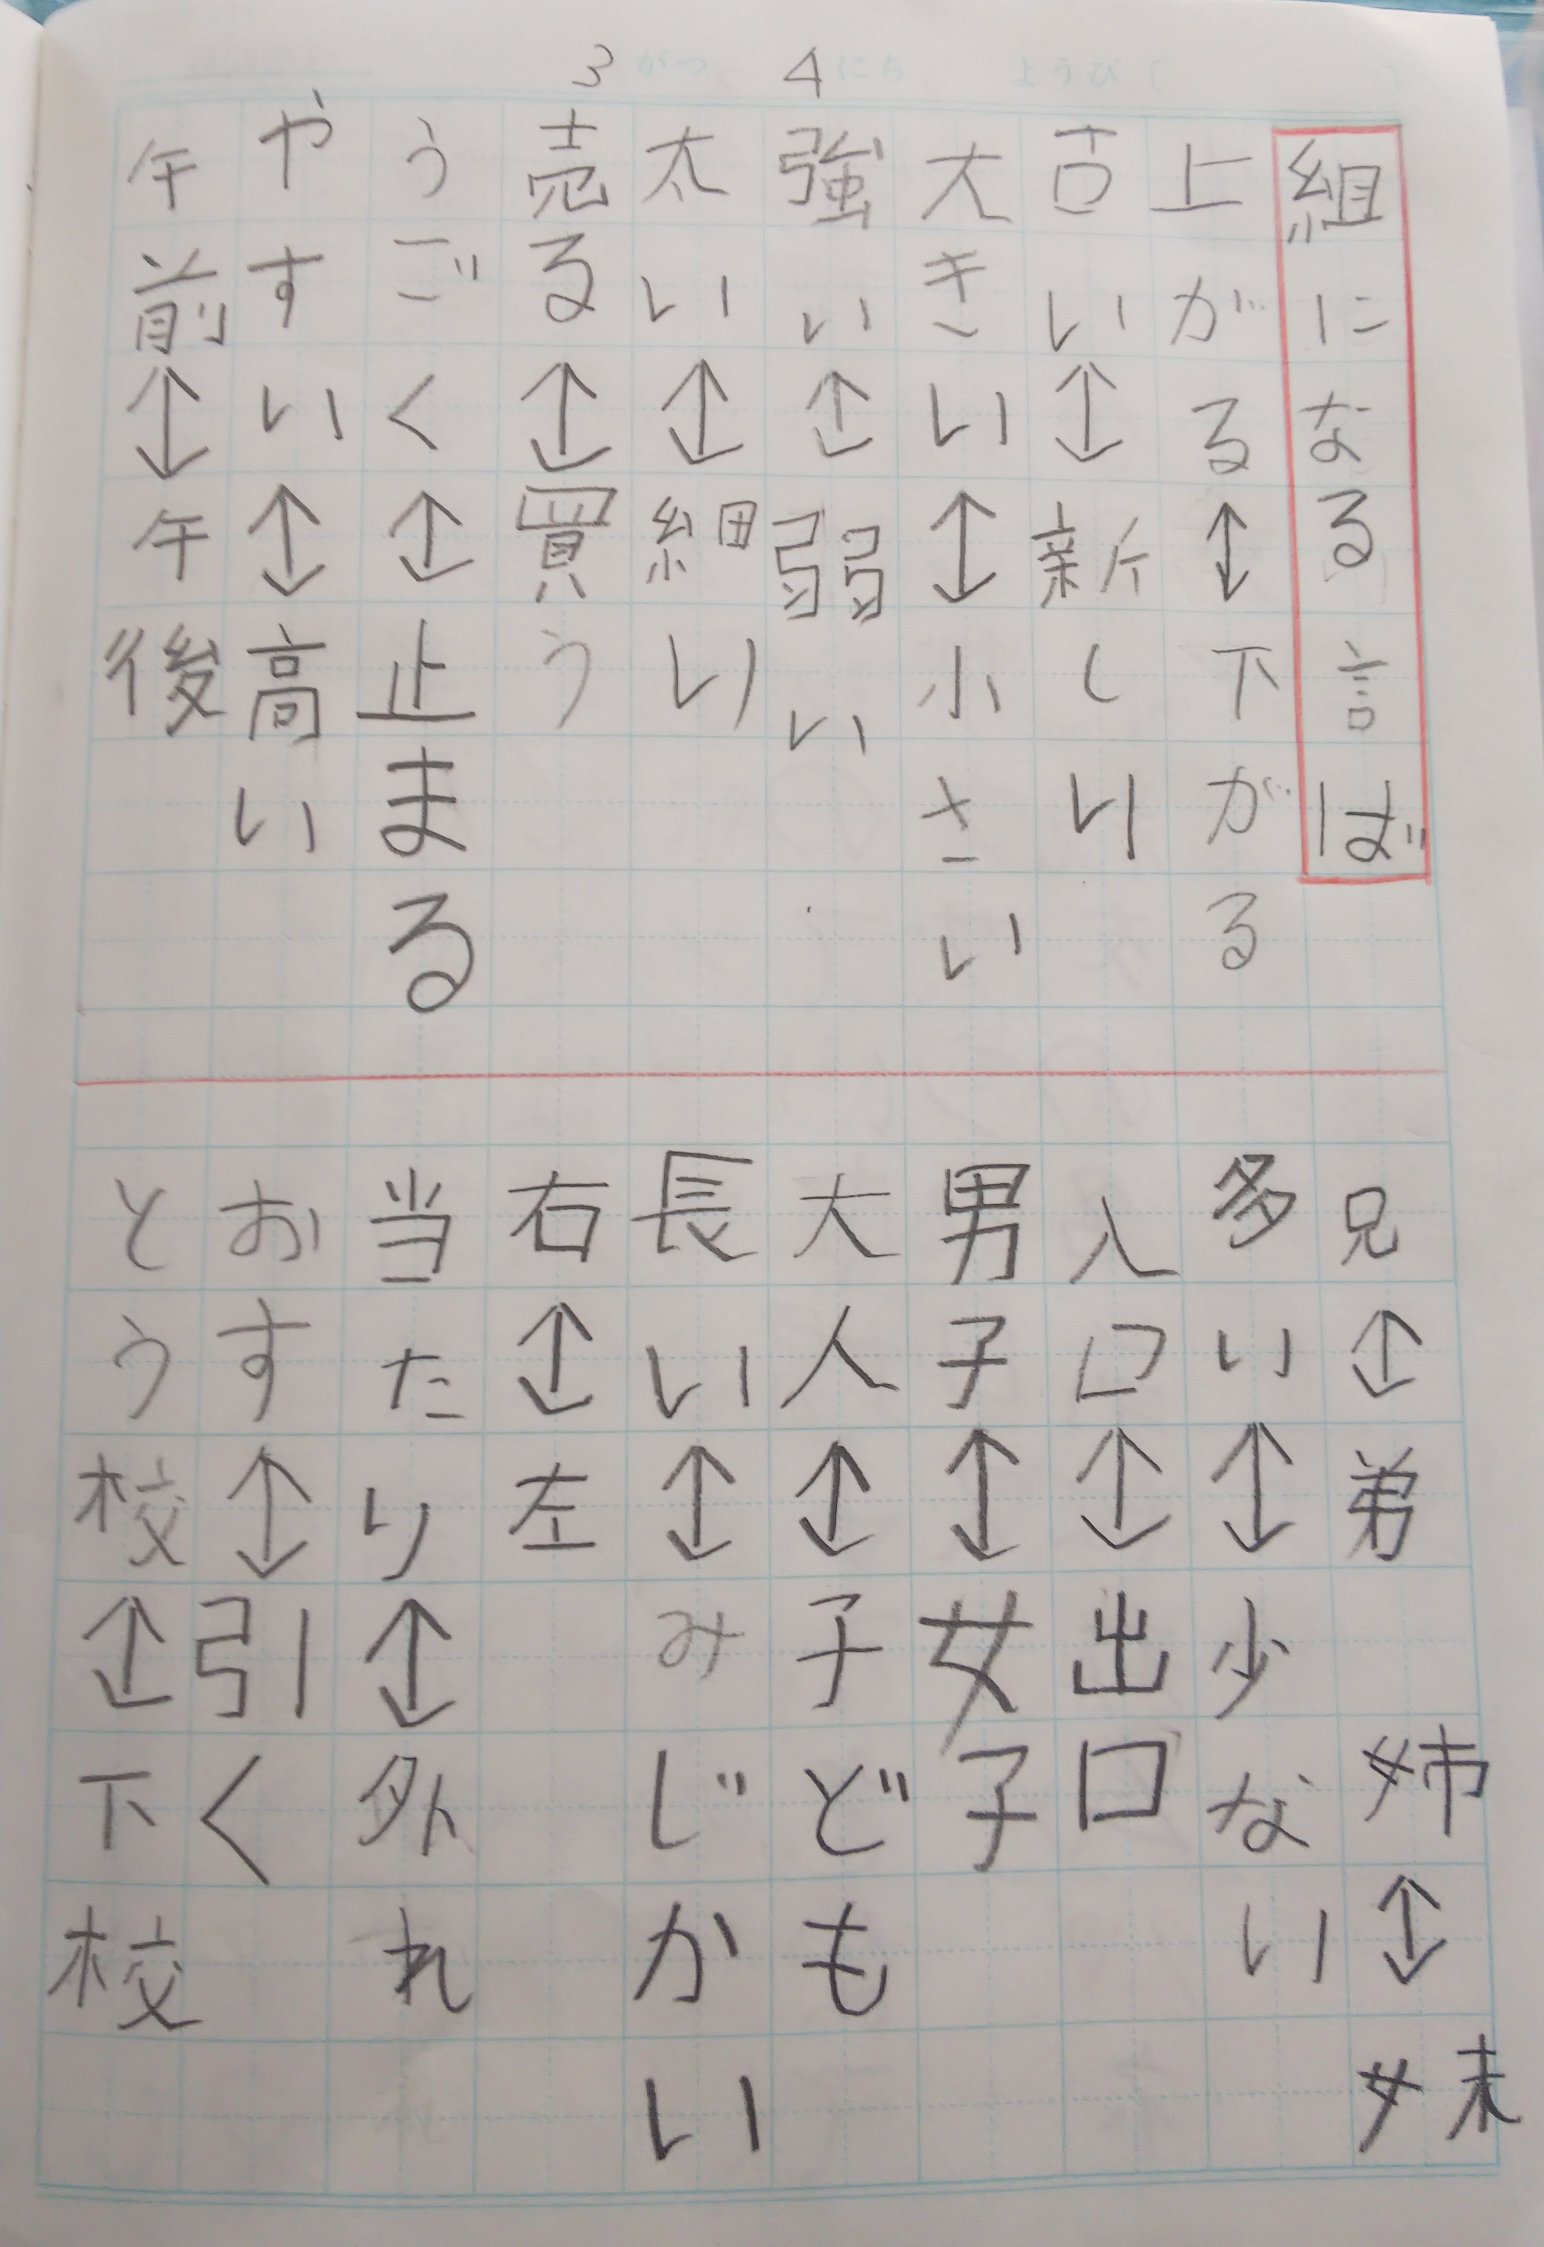 3がつ 4にち ようび〔 〕
組になる言ば
上がる↔下がる
古い↔新しい
大きい↔小さい
強い↔弱い
太い↔細い
売る↔買う
うごく↔止まる
やすい↔高い
午前↔午後
兄↔弟 姉↔妹
多い↔少ない
入口↔出口
男子↔女子
大人↔子ども
長い↔みじかい
右↔左
当たり↔外れ
おす↔引く
とう校↔下校